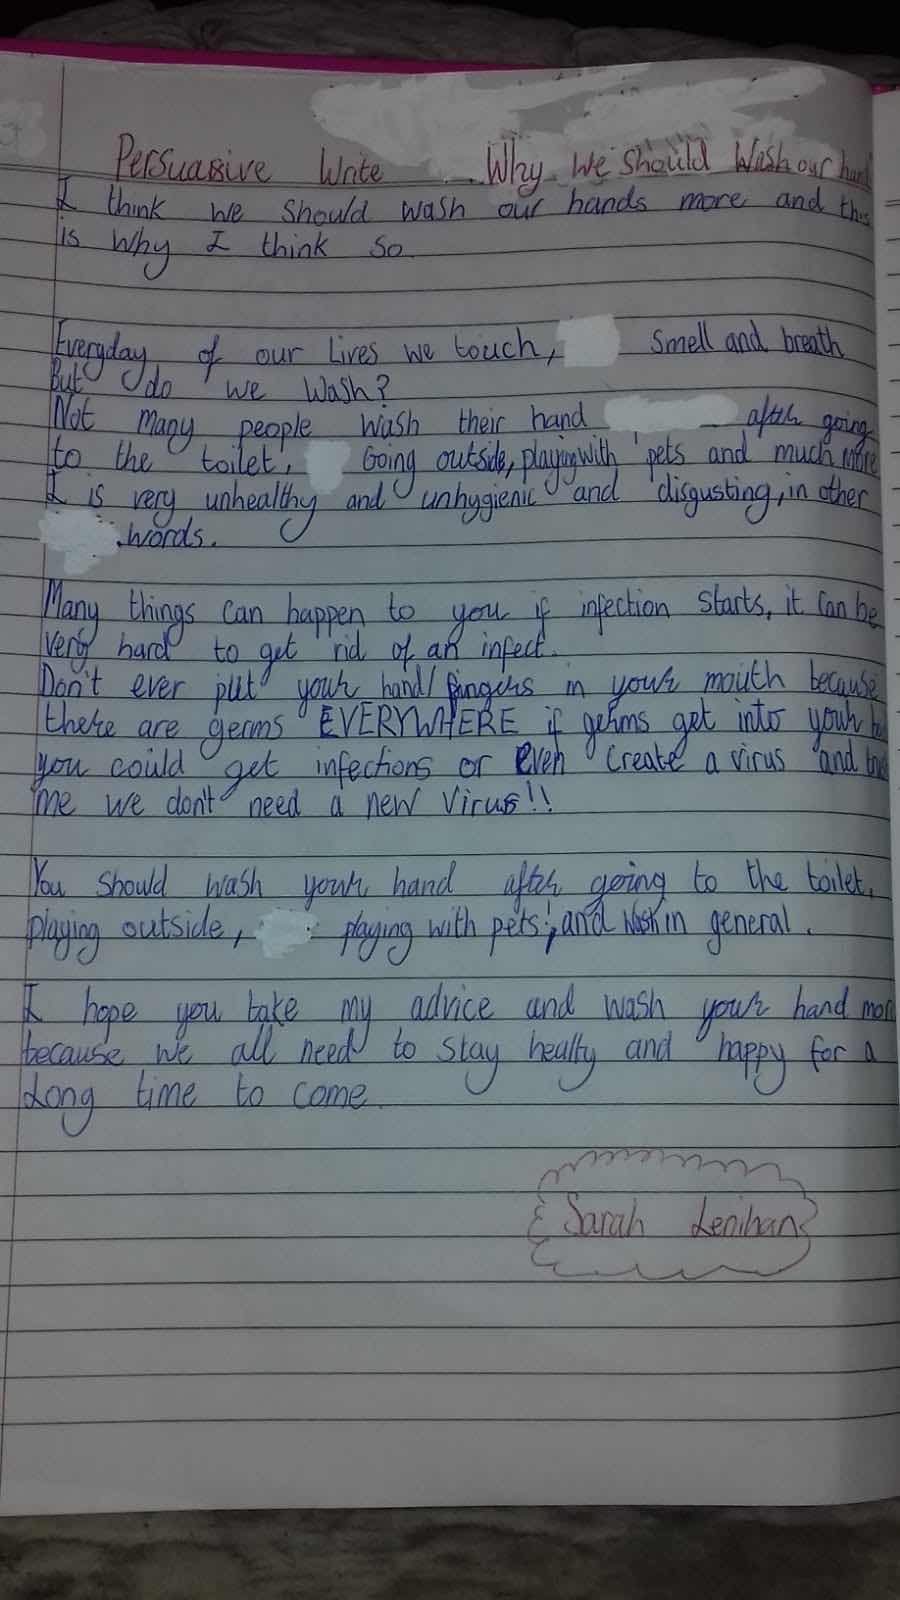 Persuasive Write Why We Should Wash our hand
I think we should wash our hands more and this
is Why I think so.
Everyday of our Lives we touch, Smell and breath
But do we Wash?
Not many people wash their hand after going
to the toilet, Going outside, playing with pets and much more
I is very unhealthy and unhygienic and disgusting, in other
words.
Many things can happen to you if infection starts, it can be
very hard to get rid of an infect.
Don't ever put your hand/fingers in your mouth because
there are germs EVERYWHERE if germs get into your
you could get infections or even create a virus and
me we don't need a new virus!!
You should wash your hand after going to the toilet,
playing outside, playing with pets, and Wash in general.
I hope you take my advice and wash your hand more
because we all need to stay healty and happy for a
Long time to come.
Sarah Lenihan